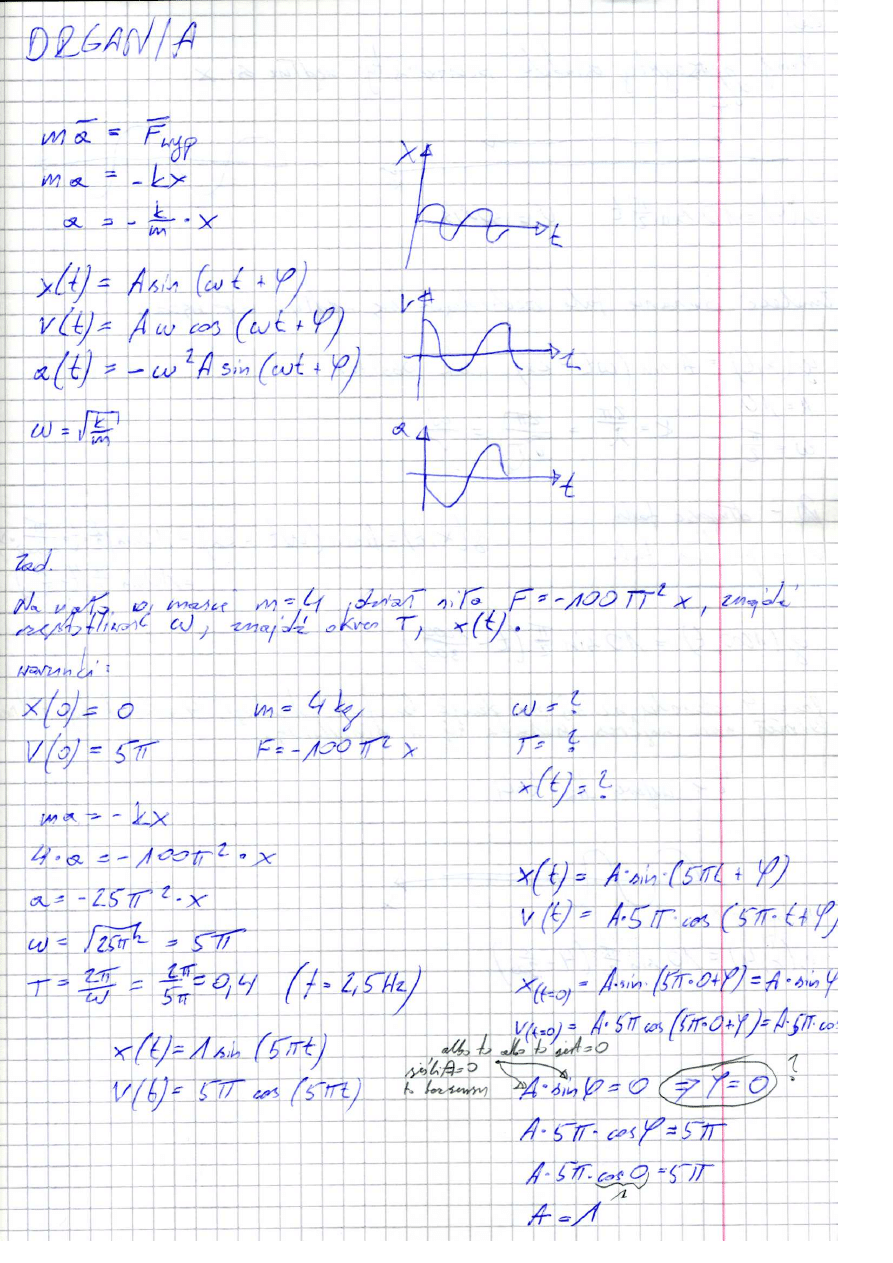 DRGANIA
m a̅ = F̅wyp
ma = -kx
a = - k/m · x
x(t) = A sin (ωt + φ)
v(t) = A ω cos (ωt + φ)
a(t) = - ω² A sin (ωt + φ)
ω = √(k/m)
x
t
v
t
a
t
Zad.
Na masie m = 4 siła F = -100 π² x, znajdź
ω, znajdź okres T, x(t).
warunki:
x(0) = 0
v(0) = 5π
m = 4 kg
F = -100 π² x
ω = ?
T = ?
x(t) = ?
ma = - kx
4·a = -100π² · x
a = -25π² · x
ω = √25π² = 5π
T = 2π/ω = 2π/5π = 0,4 (f = 2,5Hz)
x(t) = 1 sin (5πt)
v(t) = 5π cos (5πt)
x(t) = A·sin·(5πt + φ)
v(t) = A·5π·cos (5π·t+φ)
x(t=0) = A·sin·(5π·0+φ) = A·sin φ
v(t=0) = A·5π cos (5π·0+φ) = A·5π·cos
albo to albo to jest = 0
jeśli A=0
to bez sensu
A·sin φ = 0 ⇒ φ = 0 ?
A·5π·cos φ = 5π
A·5π·cos 0 = 5π
1
A = 1